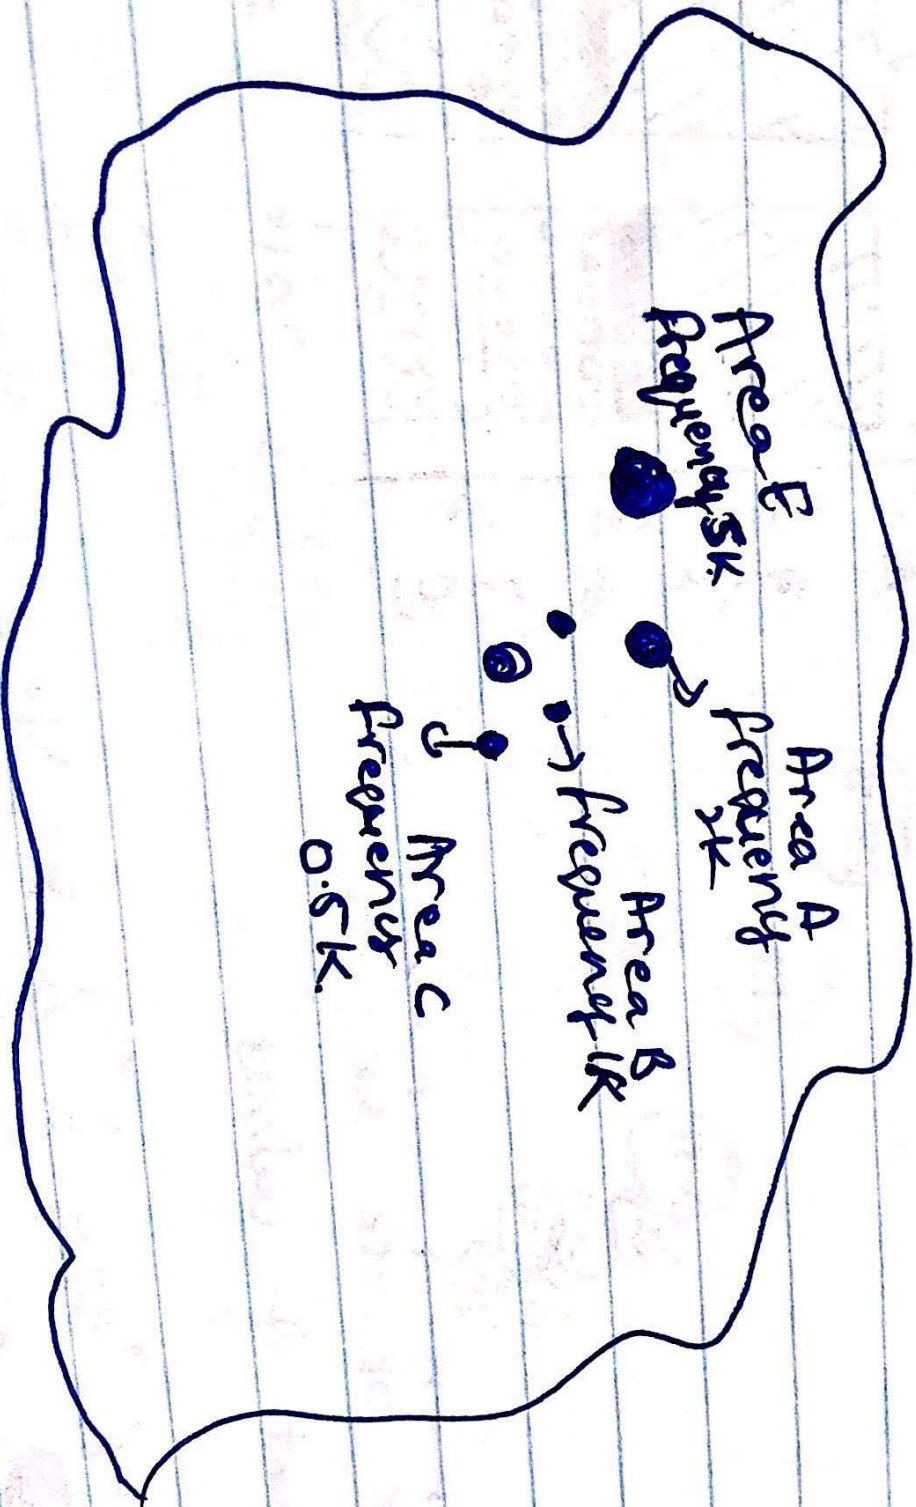 Area A
frequency
2K
Area E
frequency 5K
Area B
frequency 1K
Area C
frequency
0.5K